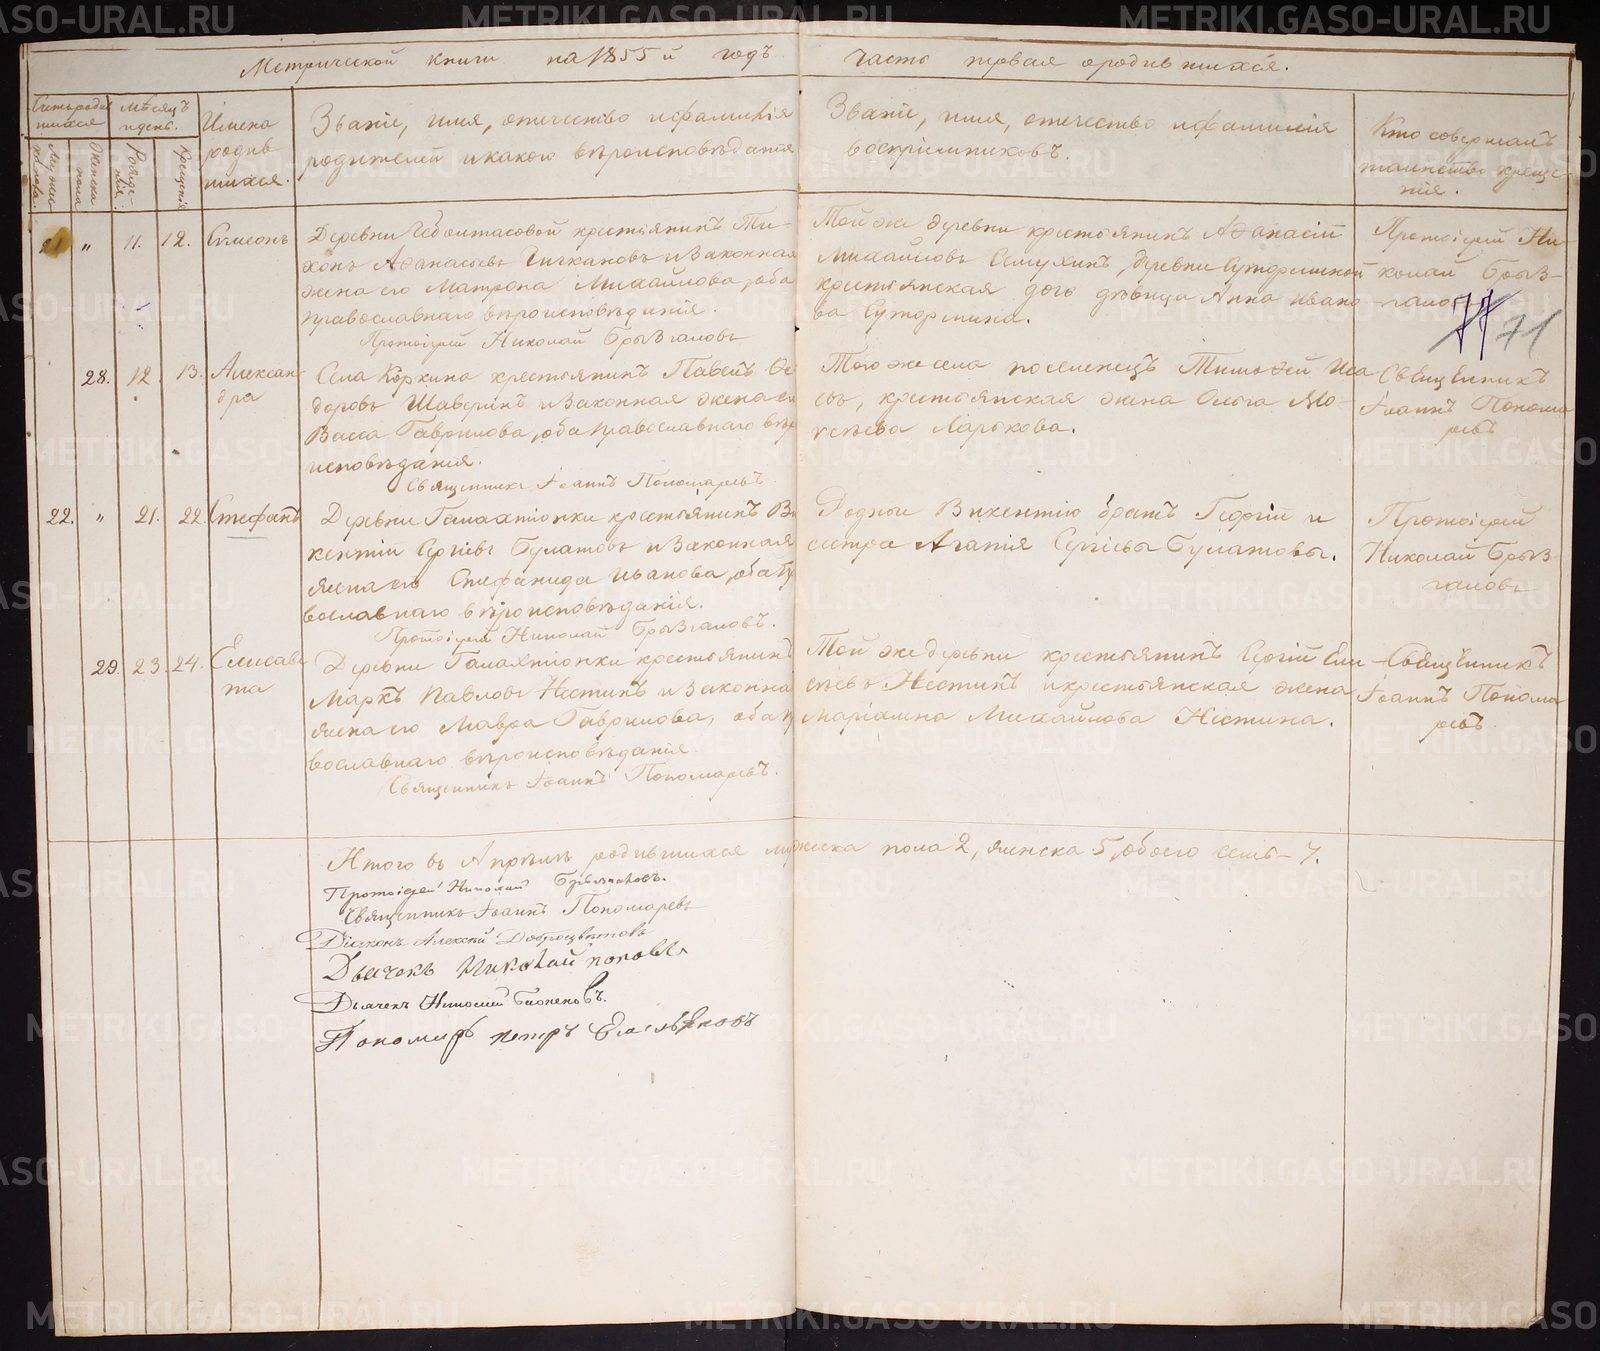 Метрической книги на 1855й годъ часть первая о родившихся.
Счетъ родившихся
Мужеска пола.
Женска пола
Мѣсяцъ и день.
Рожденія.
Крещенія
Имена родившихся.
Званіе, имя, отечество и фамилія
родителей и какого вѣроисповѣданія
Званіе, имя, отечество и фамилія
воспріемниковъ.
Кто совершалъ
таинство крещенія.
21 " 11. 12. Симеонъ
Деревни крестьянинъ Ти-
хонъ Аѳанасьевъ и законная
жена его Матрона Михайлова, оба
православнаго вѣроисповѣданія.
Протоіерей Николай Брызгаловъ
Той же деревни крестьянинъ Аѳанасій
Михайловъ Семухинъ, деревни Суторминой
крестьянская дочь дѣвица Анна Ивано-
ва Сутормина.
Протоіерей Ни-
колай Брыз-
галовъ
77 71
28. 12. 13. Алексан-
дра
Села Коркина крестьянинъ Павелъ Ѳе
доровъ Шаверинъ и законная жена его
Васса Гаврилова, оба православнаго вѣро
исповѣданія.
Священникъ Іоаннъ Пономаревъ
Того же села поселенецъ Тимоѳей Иса
евъ, крестьянская жена Ольга Мо-
исеева Ларькова.
Священникъ
Іоаннъ Понома
ревъ
22. " 21. 22. Стефанъ
Деревни Галахтіонки крестьянинъ Ви
кентій Сергіевъ Булатовъ и законная
жена его Стефанида Иванова, оба пра
вославнаго вѣроисповѣданія.
Протоіерей Николай Брызгаловъ.
Родной Викентію братъ Георгій и
сестра Агапія Сергіевы Булатовы.
Протоіерей
Николай Брыз-
галовъ
29. 23. 24. Елисаве
та
Деревни Галахтіонки крестьянинъ
Маркъ Павловъ Нестинъ и законная
жена его Мавра Гаврилова, оба пра
вославнаго вѣроисповѣданія.
Священникъ Іоаннъ Пономаревъ.
Той же деревни крестьянинъ Сергій Ели
сѣевъ Нестинъ и крестьянская жена
Маріамна Михайлова Нестина.
Священникъ
Іоаннъ Понома
ревъ
Итого въ Апрѣлѣ родившихся мужеска пола 2, женска 5, обоего семь - 7.
Протоіерей Николай Брызгаловъ.
Священникъ Іоаннъ Пономаревъ
Діаконъ Алексѣй Доброцвѣтовъ
Дьячекъ Николай Поповъ
Дьячекъ Николай
Пономарь Петръ